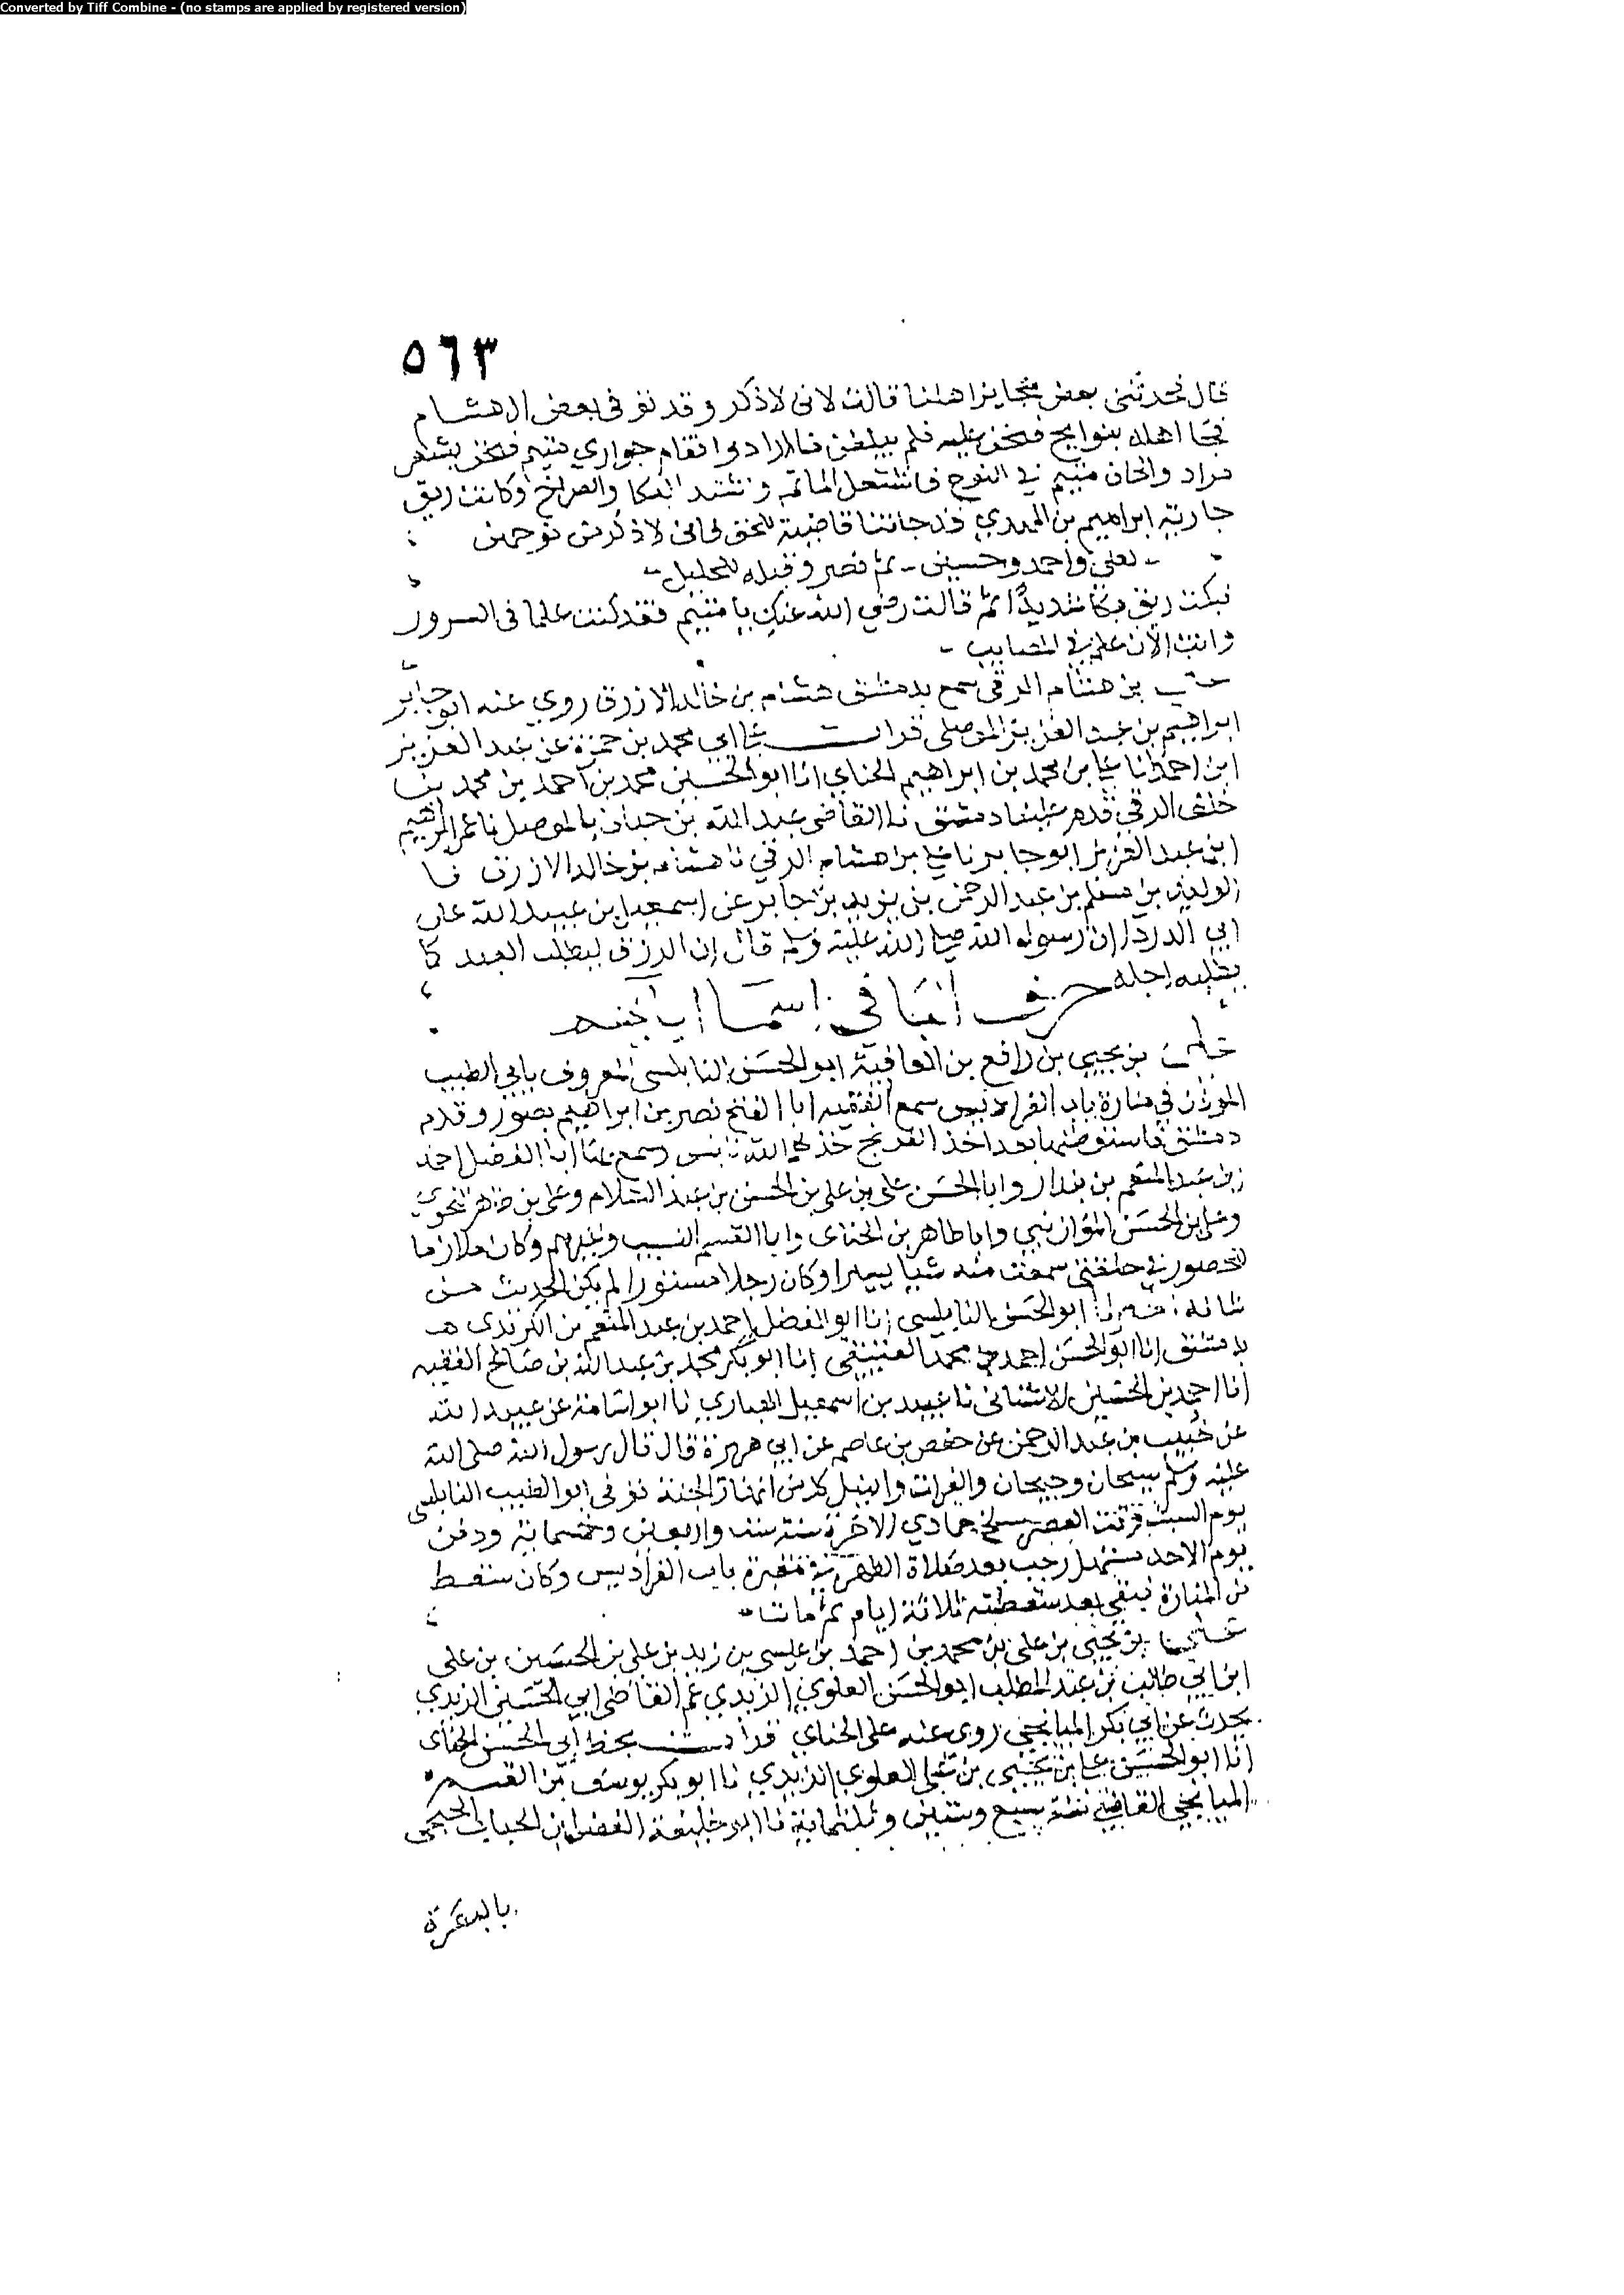 Converted by Tiff Combine - (no stamps are applied by registered version)
٥٦٣
قال فحدثتني بعض عجايز اهلنا قالت لاني لاذكر وقد توفي بعض ال هشام
فجا اهله بنوايح فنحن عليه فلم يبلغن ما ارادوا فقام جواري متيم فنحن بشعر
مراد والحان متيم في النوح فاشتعل الماتم واشتد البكا والصراخ وكانت ريق
جارية ابراهيم بن المهدي قد جاتنا قاضية للحق فاني لاذكر من نوحهن
لعلي واحمد وحسين ثم نصر وقبله للخليل
فبكت ريق بكا شديدا ثم قالت رضي الله عنك يا متيم فقد كنت علما في السرور
وانت الان علم في المصايب
علي بن هشام الرقي سمع بدمشق هشام بن خالد الازرق روي عنه ابو جابر
ابراهيم بن عبد العزيز الموصلي قرات علي ابي محمد بن حمزة عن عبد العزيز
ابن احمد انا علي بن محمد بن ابراهيم الحناي انا ابو الحسين محمد بن احمد بن محمد بن
خلف الرقي قدم علينا دمشق نا القاضي عبد الله بن حبان بالموصل نا ابراهيم
ابن عبد العزيز ابو جابر نا علي بن هشام الرقي نا هشام بن خالد الازرق نا
الوليد بن مسلم بن عبد الرحمن بن يزيد بن جابر عن اسمعيل بن عبيد الله عن
ابي الدردا ان رسول الله صلى الله عليه وسلم قال ان الرزق ليطلب العبد كما
يطلبه اجله حرف اليا في اسما ابايهم
علي بن يحيى بن رافع بن العافية ابو الحسن النابلسي المعروف بابي الطيب
الموذن في منارة باب الفراديس سمع الفقيه ابا الفتح نصر بن ابراهيم بصور وقدم
دمشق فاستوطنها بعد اخذ الفرنج خذلهم الله نابلس وسمع بها ابا الفضل احمد
بن عبد المنعم بن بندار وابا الحسن علي بن علي بن الحسن بن عبد السلام وعلي بن طاهر النحوي
وعلي بن الحسن الموازيني وابا طاهر بن الحناي وابا القسم النسيب وغيرهم وكان ملازما
للحضور في حلقتي سمعت منه شيا يسيرا وكان رجلا مستورا لم يكن الحديث من
شانه انا ابو الحسن النابلسي انا ابو الفضل احمد بن عبد المنعم بن الكريدي
بدمشق انا ابو الحسن احمد بن محمد العتيقي انا ابو بكر محمد بن عبد الله بن صالح الفقيه
انا احمد بن الحسين الاشناني نا عبيد بن اسمعيل الهباري نا ابو اسامة عن عبيد الله
عن خبيب بن عبد الرحمن عن حفص بن عاصم عن ابي هريرة قال قال رسول الله صلى الله
عليه وسلم سيحان وجيحان والفرات والنيل كل من انهار الجنة توفي ابو الطيب النابلسي
يوم السبت وقت العصر سلخ جمادي الاخرة سنة ست واربعين وخمسماية ودفن
يوم الاحد مستهل رجب بعد صلاة الظهر في مقبرة باب الفراديس وكان سقط
من المنارة فبقي بعد سقطته ثلاثة ايام ثم مات
علي بن يحيى بن علي بن محمد بن احمد بن عيسى بن زيد بن علي بن الحسين بن علي
ابن ابي طالب بن عبد المطلب ابو الحسن العلوي الزيدي عم القاضي ابي الحسين الزيدي
يحدث عن ابي بكر الميانجي روى عنه علي الحناي قرات بخط ابي الحسن الحناي
انا ابو الحسين علي بن يحيى بن علي العلوي الزيدي نا ابو بكر يوسف بن القسم
الميانجي القاضي سنة سبع وستين وثلثماية نا ابو خليفة الفضل بن الحباب الجمحي
بالبصرة